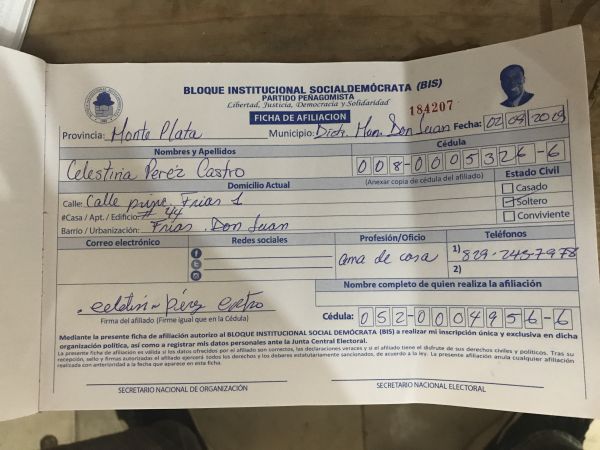 BLOQUE INSTITUCIONAL SOCIALDEMÓCRATA (BIS)
PARTIDO PEÑAGOMISTA
Libertad, Justicia, Democracia y Solidaridad
FICHA DE AFILIACION
184207
Provincia: Monte Plata Municipio: Dich. Mun. Don Juan Fecha: 02-09-2019
Nombres y Apellidos Cédula
Celestina Peréz Castro 008-0005326-6
Domicilio Actual (Anexar copia de cédula del afiliado) Estado Civil
Calle: Calle Frias Casado
#Casa / Apt. / Edificio: # 44 Soltero
Barrio / Urbanización: Frias. Don Juan Conviviente
Correo electrónico Redes sociales Profesión/Oficio Teléfonos
ama de casa 1) 829-243-7978
2)
Nombre completo de quien realiza la afiliación
perez castro
Firma del afiliado (Firme igual que en la Cédula) Cédula: 052-0004956-6
Mediante la presente ficha de afiliación autorizo al BLOQUE INSTITUCIONAL SOCIAL DEMÓCRATA (BIS) a realizar mi inscripción única y exclusiva en dicha
organización política, así como a registrar mis datos personales ante la Junta Central Electoral.
La presente ficha de afiliación es válida si los datos ofrecidos por el afiliado son correctos, las declaraciones veraces y si el afiliado tiene el disfrute de sus derechos civiles y políticos. Tras su
recepción, sello y firmas autorizadas el afiliado ejercerá todos los derechos y los deberes estatutariamente sancionados, de acuerdo a la ley. La presente afiliación anula cualquier afiliación
realizada con anterioridad a la fecha que aparece en esta ficha.
SECRETARIO NACIONAL DE ORGANIZACIÓN SECRETARIO NACIONAL ELECTORAL